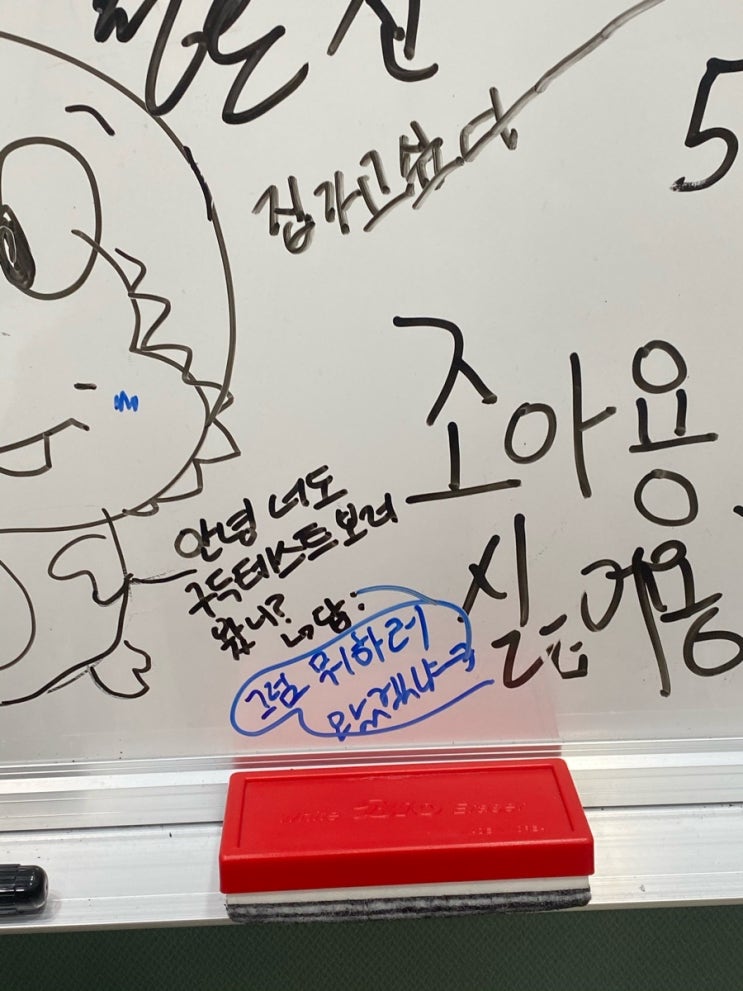 집가고싶다
5
조아용
싫어용
안녕 너도
구득테스트보러
왔니? ↳답:
그럼 뭐하러
왔겠냐ㅋ
White Eraser